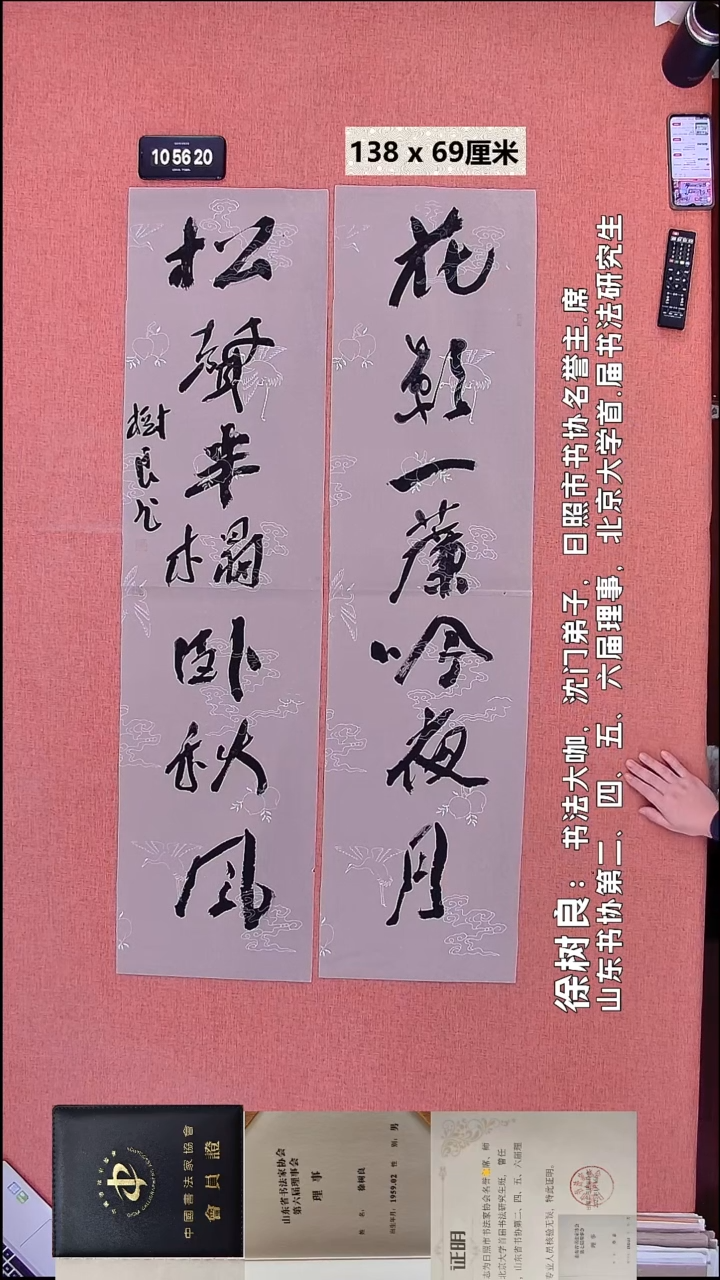 10 56 20
138 x 69厘米
花影一簾吟夜月
松聲半榻卧秋風
樹良书
徐树良：书法大咖，沈门弟子，日照市书协名誉主.席
山东书协第二、四、五、六届理事，北京大学首.届书法研究生
中國書法家協會
會員證
山东省书法家协会
第六届理事会
理 事
姓 名： 徐树良 性 别： 男
出生年月： 1959.02
证明